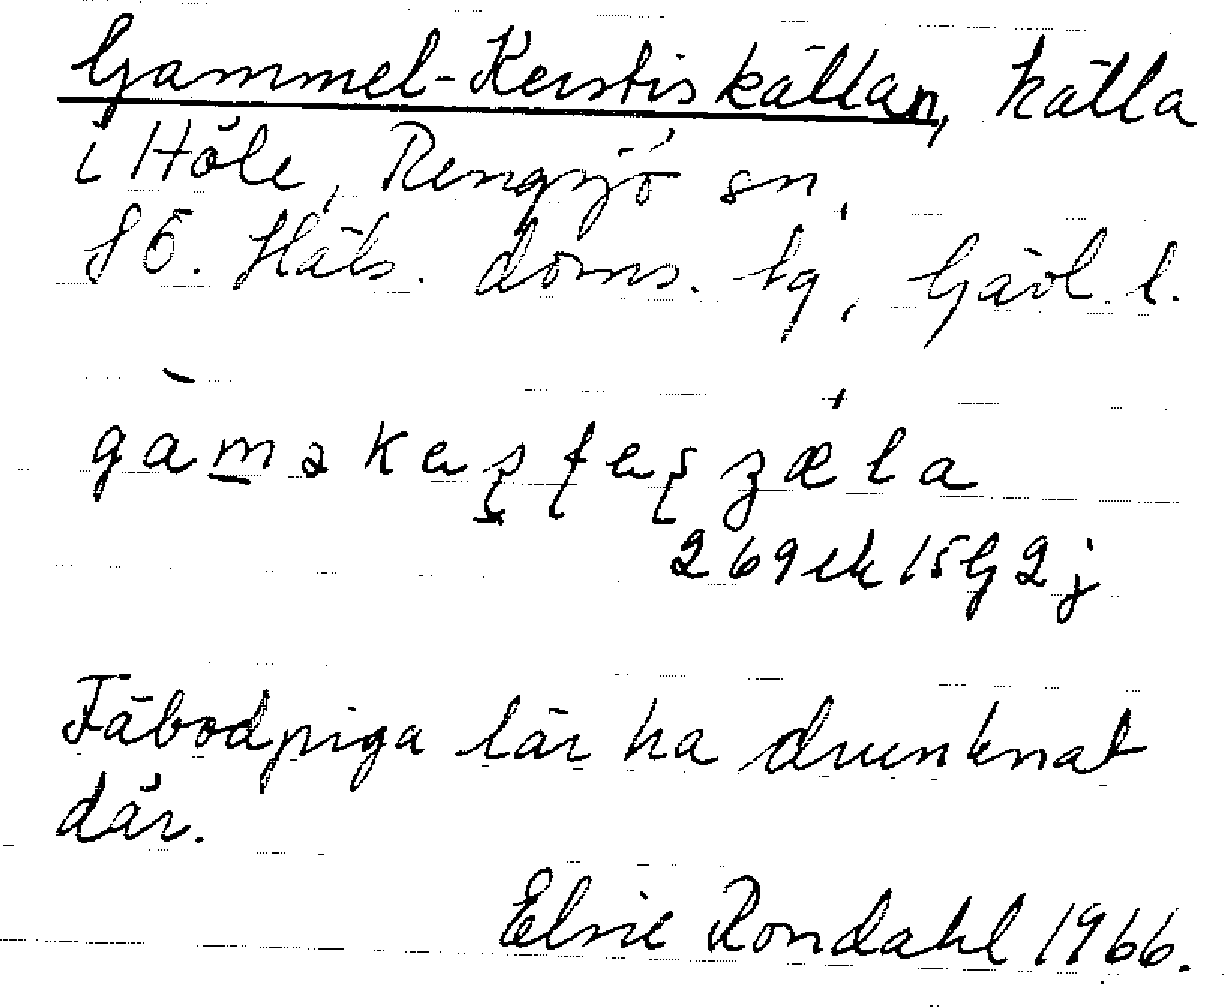 Gammel-Kerstiskällan, källa
i Höle, Rengsjö sn,
SÖ. Häls. doms. tg, Gävl. l.
269 ek 15G2j
Fäbodpiga lär ha drunknat
där.
Elsie Rondahl 1966.